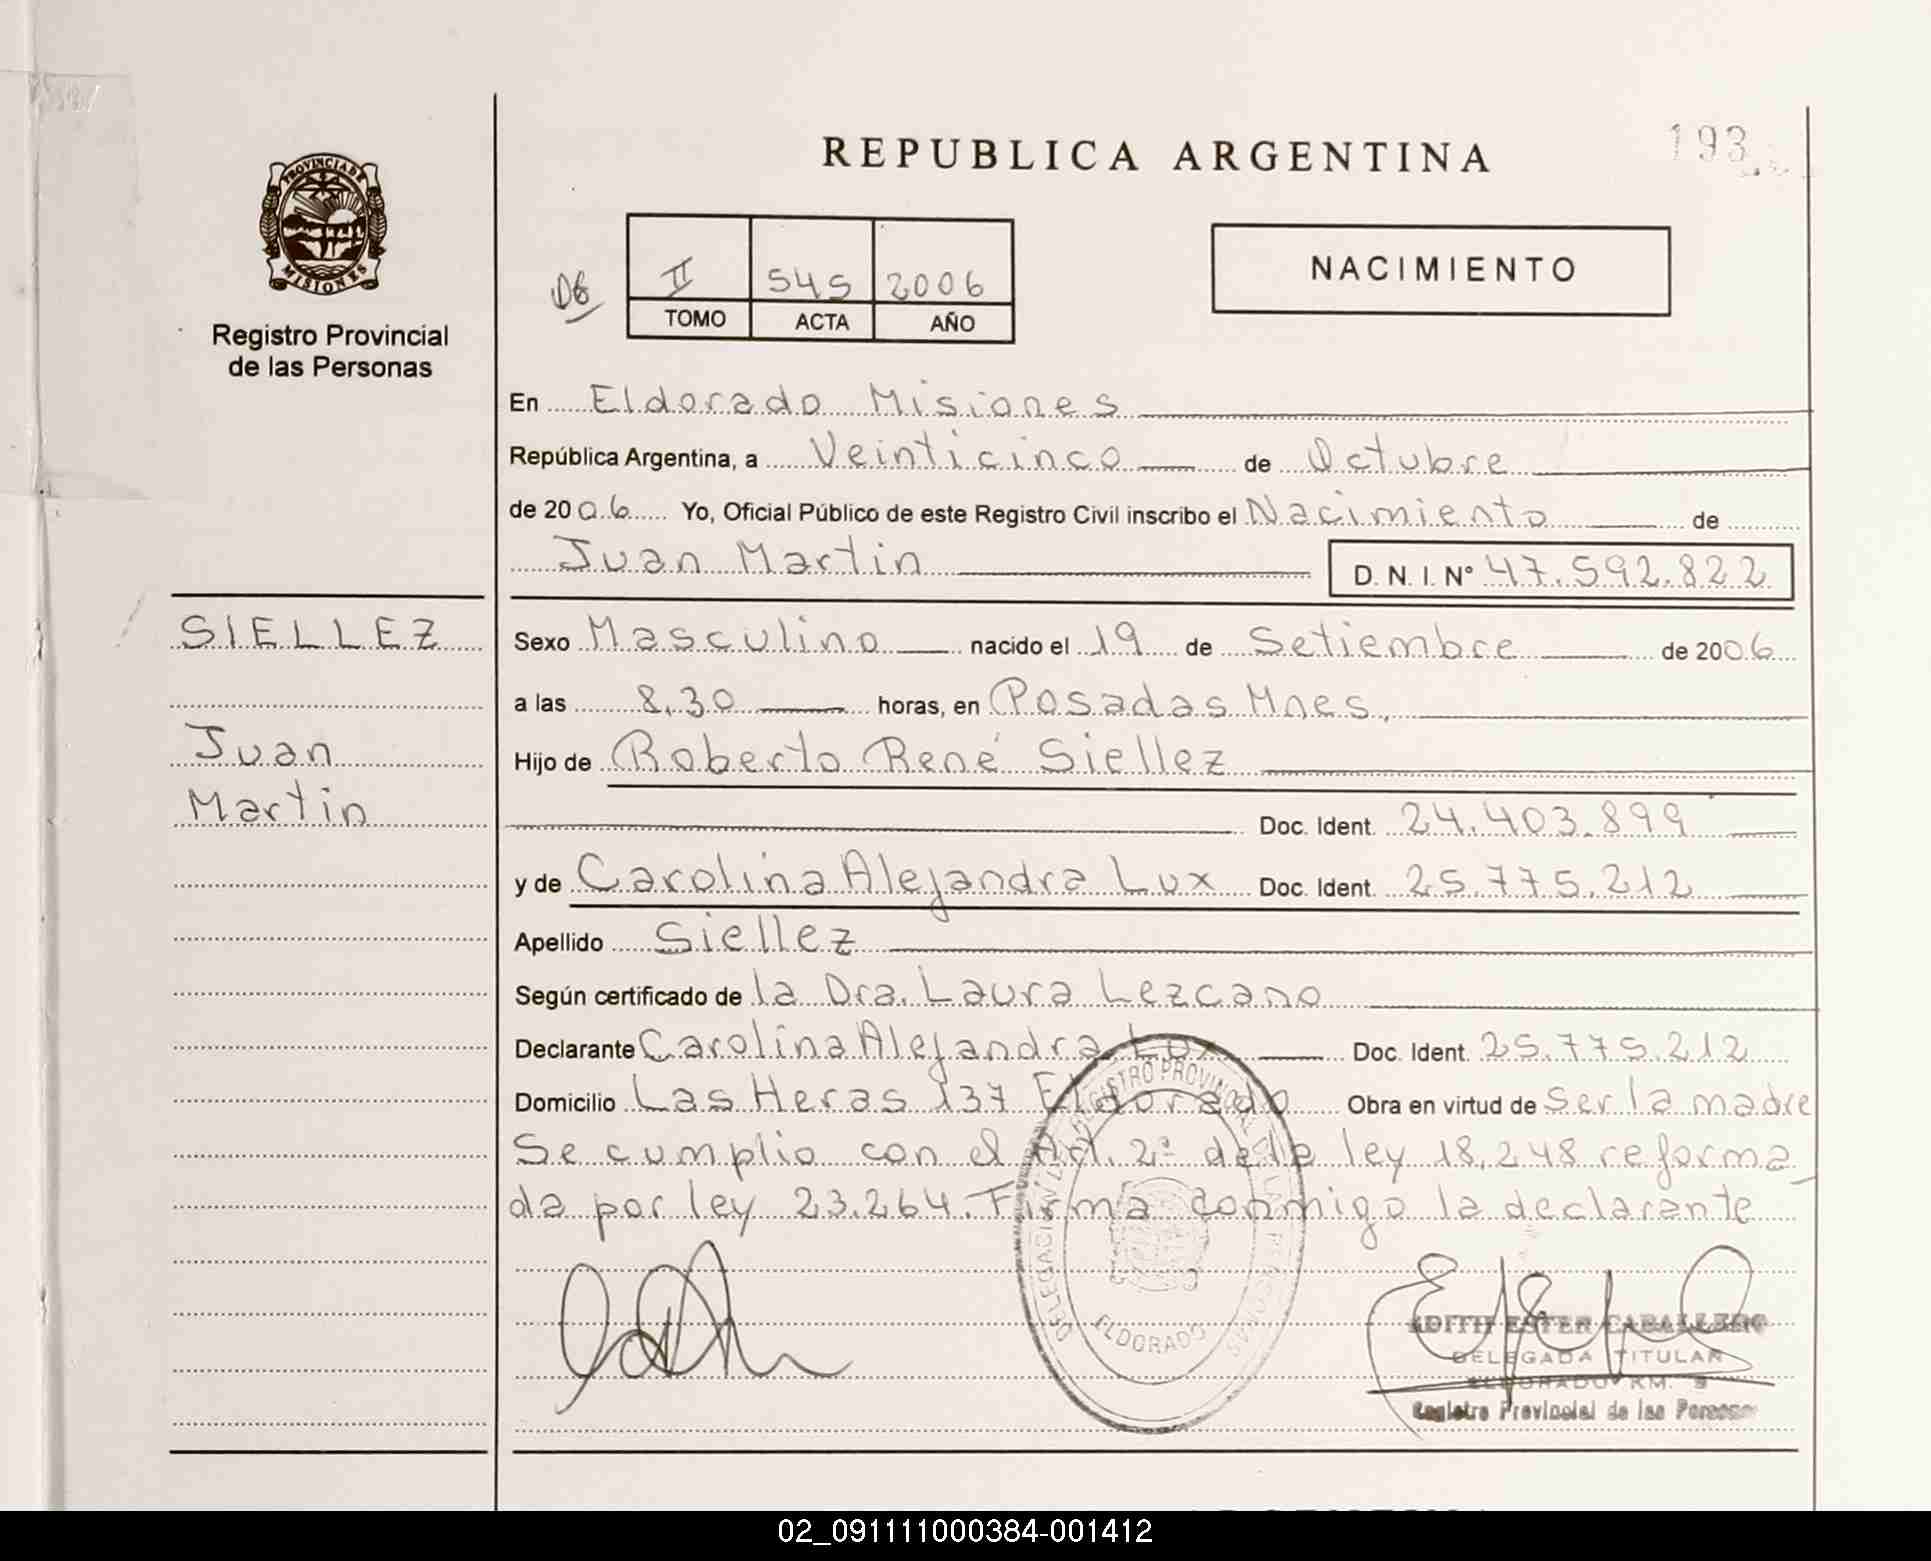 REPUBLICA ARGENTINA
193
PROVINCIA DE
MISIONES
Registro Provincial
de las Personas
06
II 545 2006
TOMO ACTA AÑO
NACIMIENTO
En Eldorado Misiones
República Argentina, a Veinticinco de Octubre
de 2006 Yo, Oficial Público de este Registro Civil inscribo el Nacimiento de
Juan Martin D. N. I. N° 47.592.822
SIELLEZ
Juan
Martin
Sexo Masculino nacido el 19 de Setiembre de 2006
a las 8.30 horas, en Posadas Mnes.
Hijo de Roberto René Siellez
Doc. Ident. 24.403.899
y de Carolina Alejandra Lux Doc. Ident. 25.775.212
Apellido Siellez
Según certificado de la Dra. Laura Lezcano
Declarante Carolina Alejandra Lux Doc. Ident. 25.775.212
Domicilio Las Heras 137 Eldorado Obra en virtud de Ser la madre
Se cumplio con el Art. 2º de la ley 18.248 reforma
da por ley 23.264. Firma conmigo la declarante
ELDORADO
EDITH ESTER CABALLERO
DELEGADA TITULAR
ELDORADO KM. 9
Registro Provincial de las Personas
02_091111000384-001412